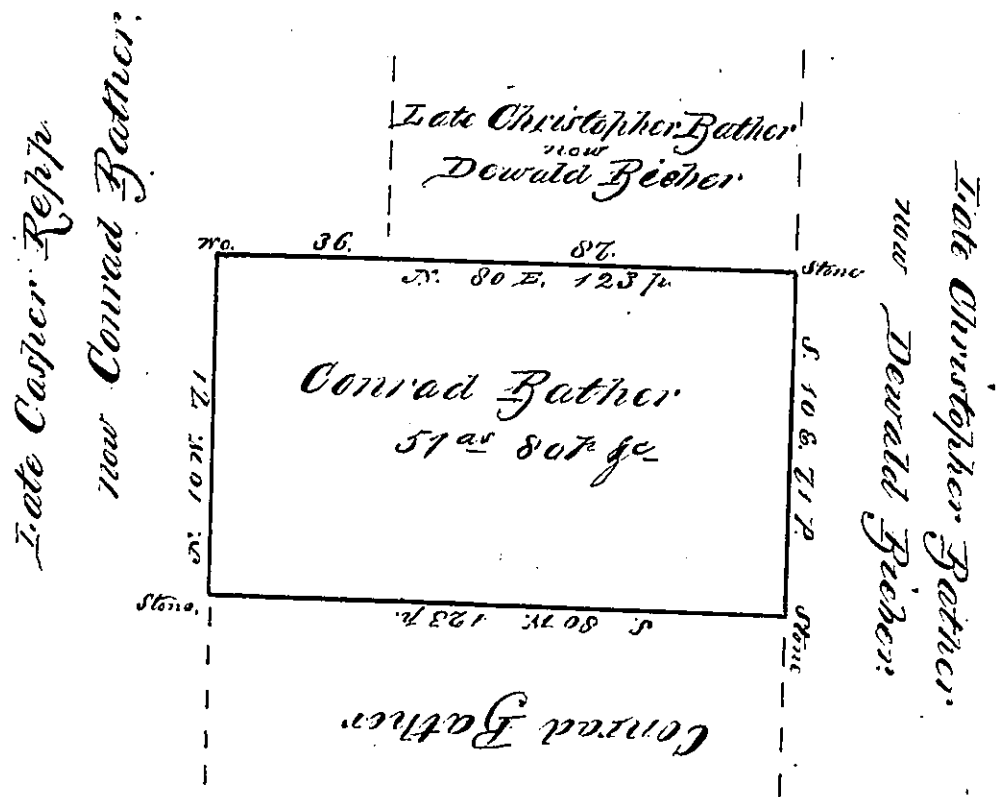 Late Casper Repp.
now Conrad Bather.
Late Christopher Bather
now
Dewald Bieher
Wo.
36.
87.
Stone
N. 80 E. 123 p.
Conrad Bather
51 as 80 p &c
N. 10 W. 71
S. 10 E. 71 P.
Stone.
S. 80 W. 123 p.
Stone
Conrad Bather
Late Christopher Bather
now Dewald Bieher.